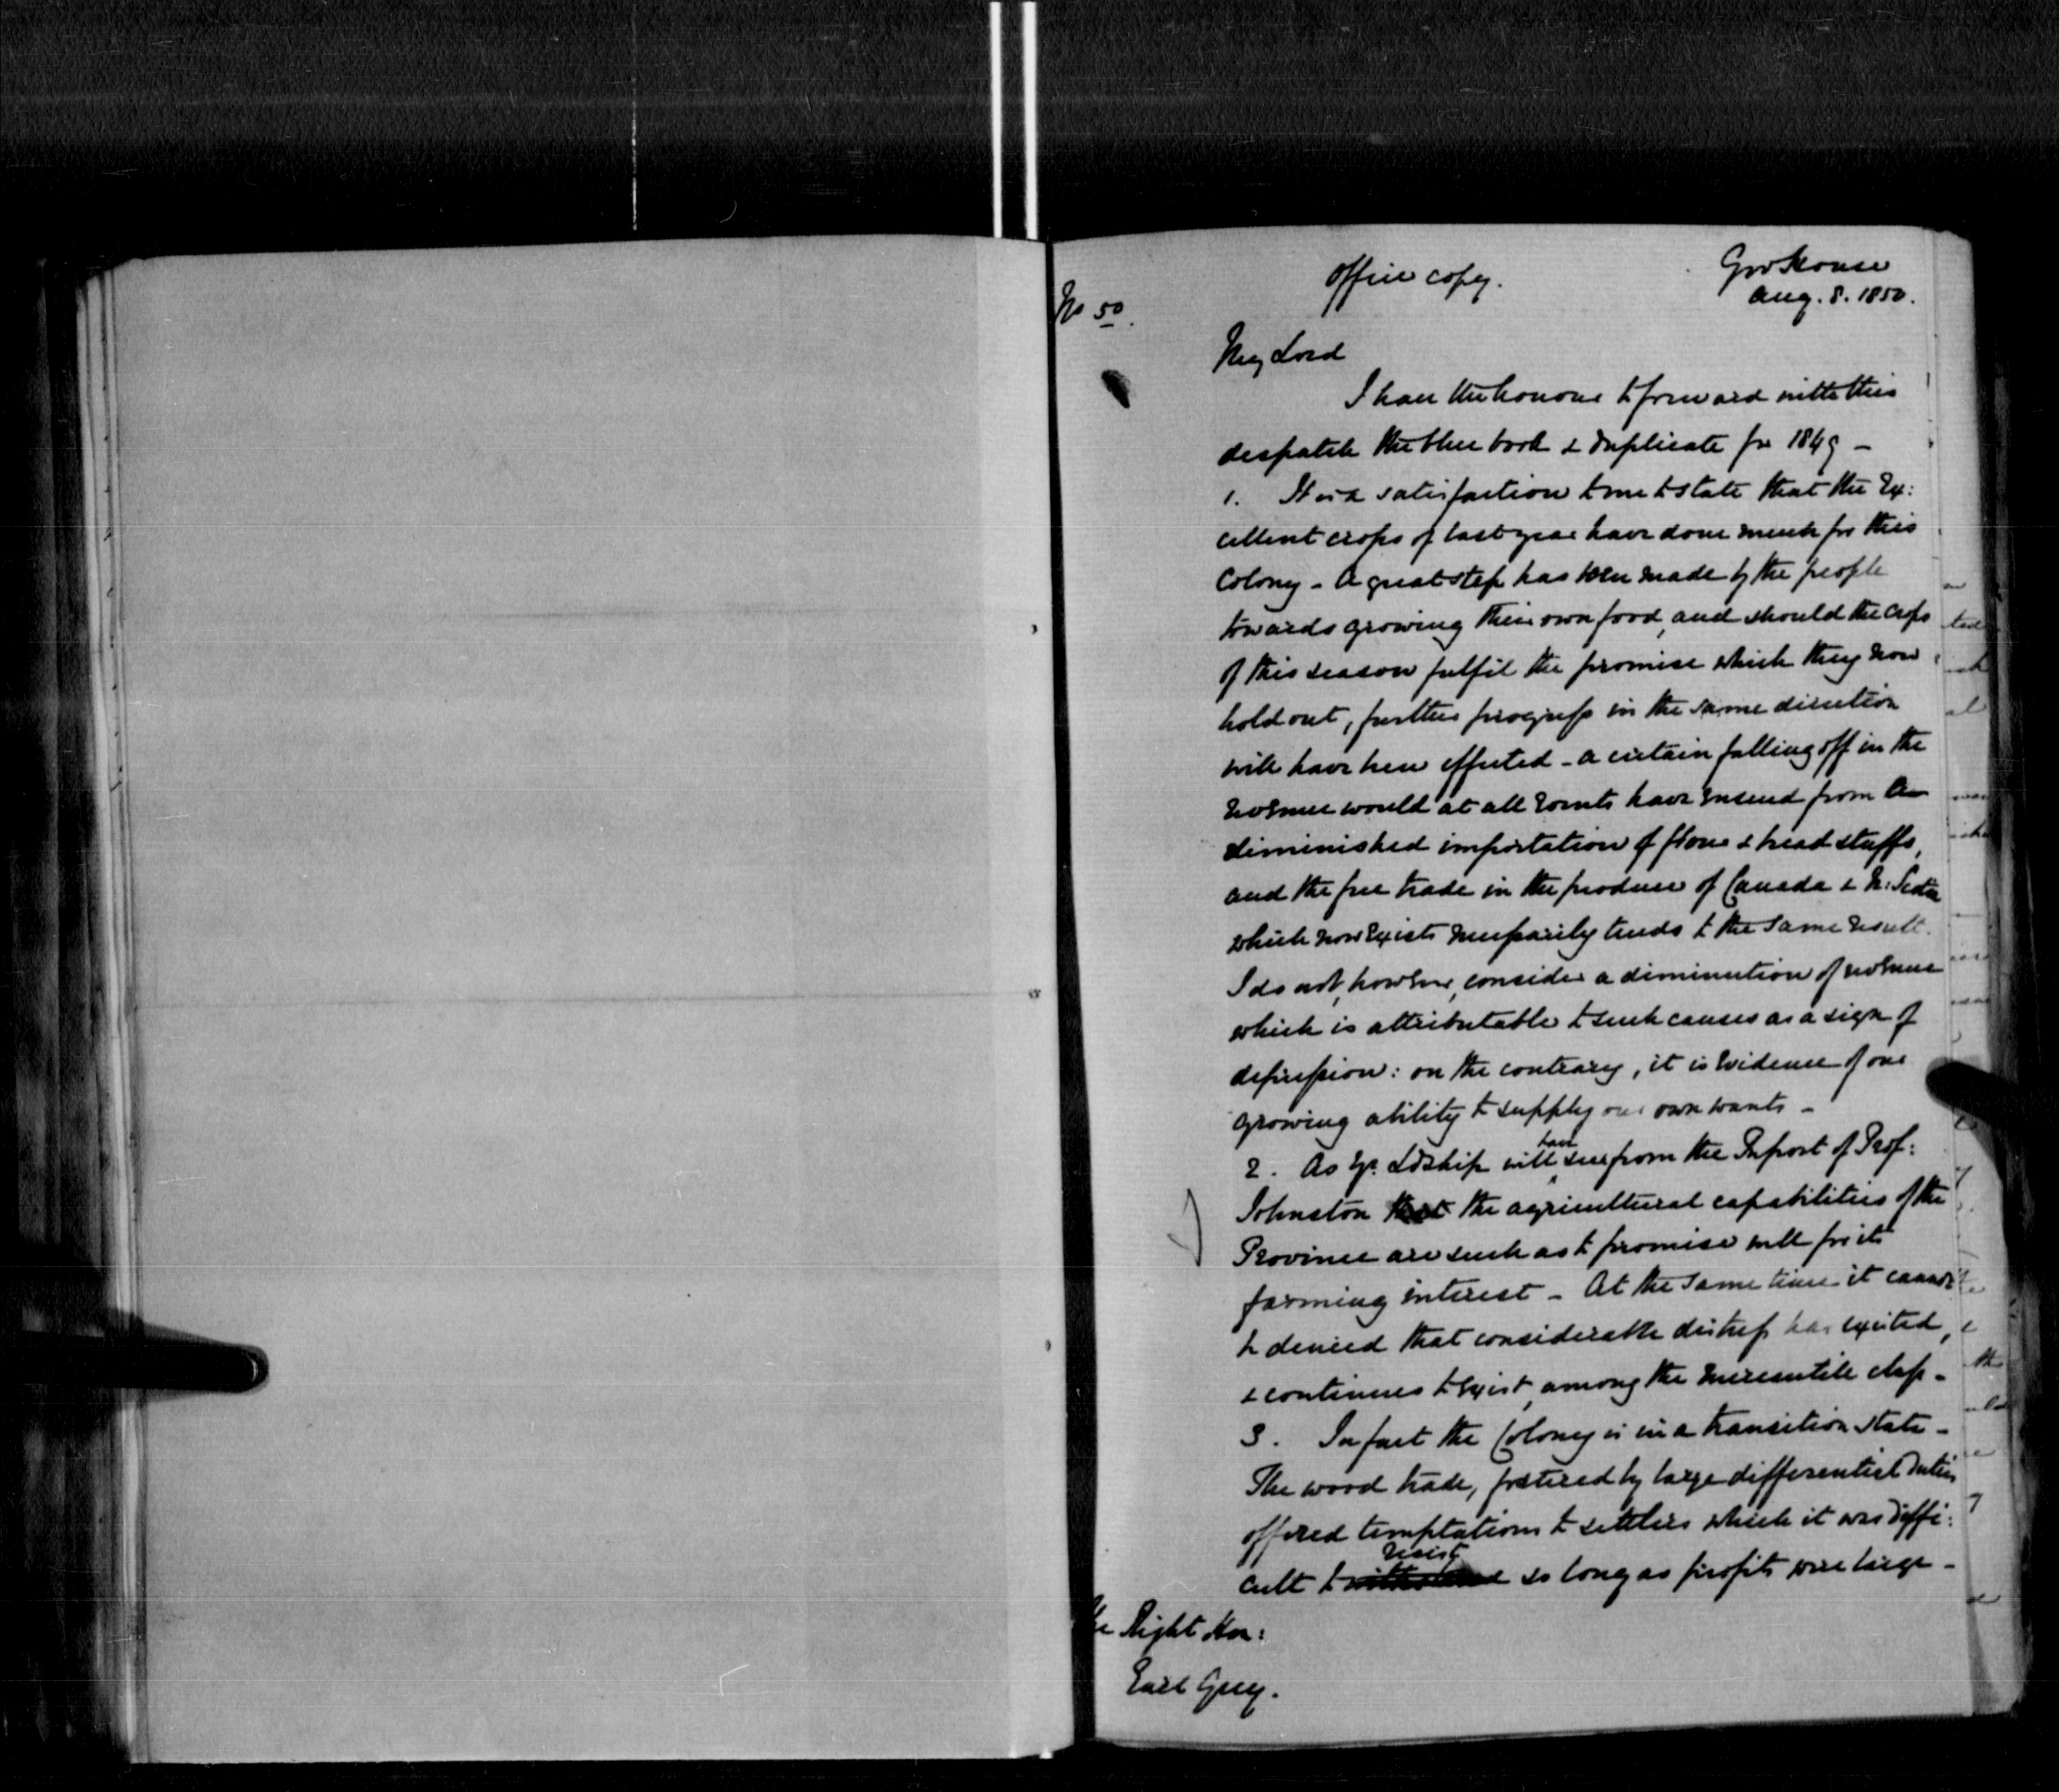 Office copy.
Gov House
Aug. 8. 1850.
No 50.
My Lord
I have the honour to forward with this
despatch the blue book & duplicate for 1849 –
1. It is a satisfaction to me to state that the Ex:
cellent crops of last year have done much for this
Colony – A great step has been made by the people
towards growing their own food, and should the crops
of this season fulfil the promise which they now
hold out, further progress in the same direction
will have been effected – a certain falling off in the
revenue would at all Events have Ensued from a
diminished importation of flour & bread stuffs,
and the free trade in the produce of Canada & N: Scotia
which now Exists necessarily tends to the same result.
I do not, however, consider a diminution of revenue
which is attributable to such causes as a sign of
depression: on the contrary, it is Evidence of our
growing ability to supply our own wants –
2. As Yr. Ldship will have seen from the Report of Prof:
Johnston that the agricultural capabilities of the
Province are such as to promise well for its
farming interest – At the same time it cannot
be denied that considerable distress has existed,
& continues to Exist, among the mercantile class –
3. In fact the Colony is in a transition state –
The wood trade, fostered by large differential duties
offered temptations to settlers which it was diffi:
cult to resist so long as profits were large –
The Right Hon:
Earl Grey.